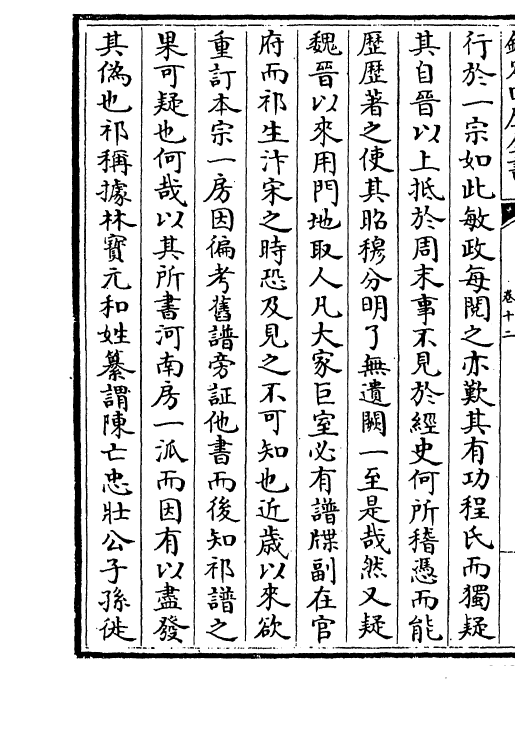 卷十二
行於一宗如此敏政每閱之亦歎其有功程氏而獨疑
其自晉以上抵於周末事不見於經史何所稽憑而能
歷歷著之使其昭穆分明了無遺闕一至是哉然又疑
魏晉以來用門地取人凡大家巨室必有譜牒副在官
府而祁生汴宋之時恐及見之不可知也近歲以來欲
重訂本宗一房因徧考舊譜旁証他書而後知祁譜之
果可疑也何哉以其所書河南房一派而因有以盡發
其偽也祁稱據林寶元和姓纂謂陳亡忠壯公子孫徙